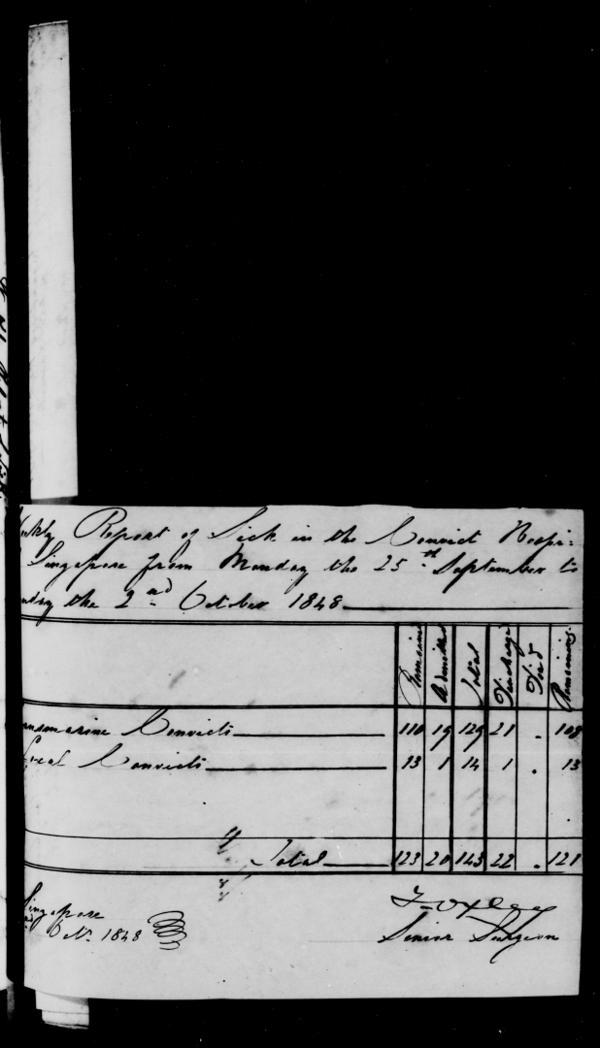 Report of Sick in the Convict Hospi:
Singapore from Monday the 25th September to
the 2nd October 1848
Remained Admitted Total Discharged Died Remaining
Convicts 110 19 129 21 . 108
Local Convicts 13 1 14 1 . 13
Total 123 20 143 22 . 121
Singapore
Octr. 1848
Senior Surgeon